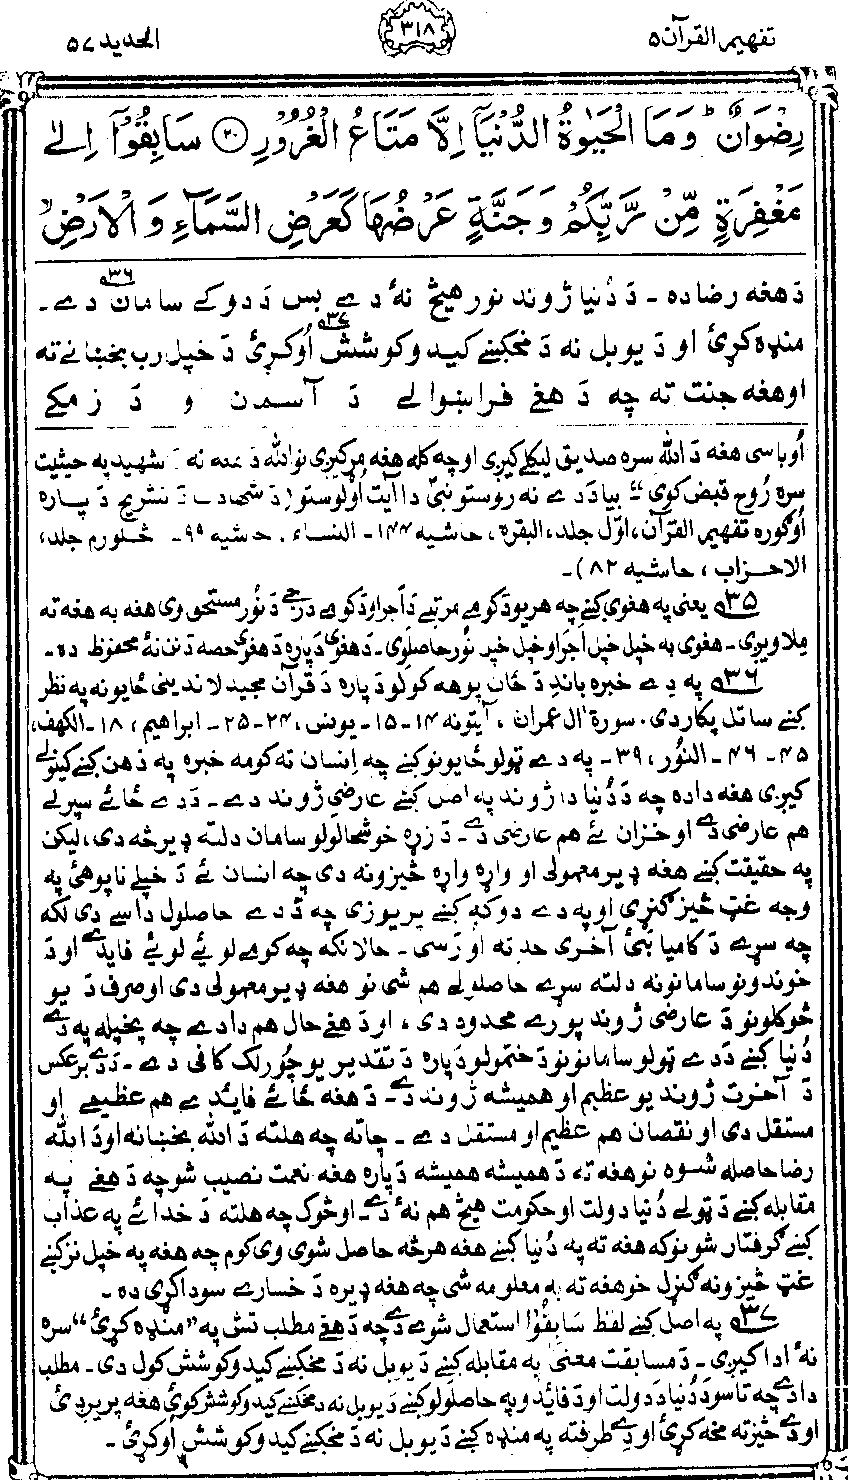 تفهیم القرآن ۵
۳۱۸
الحدید ۵۷
رِضْوَانٌ ؕ وَمَا الْحَيٰوةُ الدُّنْيَآ اِلَّا مَتَاعُ الْغُرُوْرِ ۲۰ سَابِقُوْٓا اِلٰی
مَغْفِرَةٍ مِّنْ رَّبِّكُمْ وَجَنَّةٍ عَرْضُهَا كَعَرْضِ السَّمَآءِ وَ الْاَرْضِ ۙ
دَ هغه رضا ده ـ دَ دُنیا ژوند نور هیڅ نهٔ دے بس دَ دوکے سامان۳۶ دے ـ
منډه کړئ او دَ یو بل نه دَ مخکښے کیدو کوشش۳۷ اُوکړئ دَ خپل رب بخښنانے ته
او هغه جنت ته چه دَ هغے فراښوالے دَ آسمان و دَ زمکے
اُوباسی هغه دَ الله سره صدیق لیکلے کیږی او چه کله هغه مړ کیږی نو الله دَ نه شهید په حیثیت
سره رُوح قبض کوی“ بیا دَدے نه روستو نبیؐ دا آیت اُولوستو (دَ شهادت دَ تشریح دَ پاره
اُوګوره تفهیم القرآن، اوّل جلد، البقره، حاشیه ۱۴۴ ـ النساء، حاشیه ۹۹ ـ څلورم جلد،
الاحزاب، حاشیه ۸۲) ـ
۳۵ یعنی په هغوی کښے چه هر یو دَ کومے مرتبے دَ اجر او دَ کومے درجے دَ نُور مستحق وی هغه به هغه ته
ملاویږی ـ هغوی به خپل خپل اجر او خپل خپل نُور حاصلوی ـ دَ هغوی دَ پاره دَ هغوی حصه دَ نن نهٔ محفوظ ده ـ
۳۶ په دے خبره باندِ دَ ځان پوهه کولو دَ پاره دَ قرآن مجید لاندینی ځایونه په نظر
کښے ساتل پکار دی. سورة اٰل عمران، آیتونه ۱۴ ـ ۱۵ ـ یونس، ۲۴ ـ ۲۵ ـ ابراهیم، ۱۸ ـ الکهف،
۴۵ ـ ۴۶ ـ النُّور، ۳۹ ـ په دے ټولو ځایونو کښے چه اِنسان ته کومه خبره په ذهن کښے کینولے
کیږی هغه دا ده چه دَ دُنیا دا ژوند په اصل کښے عارضی ژوند دے ـ دَ دے ځائے سپرلے
هم عارضی دے او خزان ئے هم عارضی دے ـ دَ زړه خوشحالولو سامان دلته ډیر څه دی، لیکن
په حقیقت کښے هغه ډیر معمولی او واړه واړه څیزونه دی چه اِنسان ئے دَ خپلے ناپوهئ په
وجه غټ څیز ګنړی او په دے دوکه کښے پریوزی چه دَ دے حاصلول داسے دی لکه
چه سړے دَ کامیابئ آخری حد ته اورسی ـ حالانکه چه کومے لوئے لوئے فایدے او دَ
خوندونو سامانونه دلته سړے حاصلولے هم شی نو هغه ډیر معمولی دی او صرف دَ یو
څو کلونو دَ عارضی ژوند پورے محدود دی، او دَ هغے حال هم دا دے چه پخپله په دے
دُنیا کښے دَ دے ټولو سامانونو دَ ختمولو دَ پاره دَ تقدیر یو چُورلک کافی دے ـ دَ دے برعکس
دَ آخرت ژوند یو عظیم او همیشه ژوند دے ـ دَ هغه ځائے فایدے هم عظیمے او
مستقل دی او نقصان هم عظیم او مستقل دے ـ چاته چه هلته دَ الله بخښانه او دَ الله
رضا حاصله شوه نو هغه ته دَ همیشه همیشه دَ پاره هغه نعمت نصیب شو چه دَ هغے په
مقابله کښے دَ ټولے دُنیا دولت او حکومت هیڅ هم نهٔ دے ـ او څوک چه هلته دَ خدائے په عذاب
کښے ګرفتار شو نو که هغه ته په دُنیا کښے هغه هر څه حاصل شوی وی کوم چه هغه په خپل نزد کښے
غټ څیزونه ګنړل خو هغه ته به معلومه شی چه هغه ډیره دَ خسارے سودا کړی ده ـ
۳۷ په اصل کښے لفظ سَابِقُوْا استعمال شوے دے چه دَ هغے مطلب تش په ”منډه کړئ“ سره
نهٔ ادا کیږی ـ دَ مسابقت معنیٰ په مقابله کښے دَ یو بل نه دَ مخکښے کیدو کوشش کول دی ـ مطلب
دا دے چه تاسو دَ دُنیا دَ دولت او دَ فایدو په حاصلولو کښے دَ یو بل نه دَ مخکښے کیدو کوشش کوئ هغه پریږدئ
او دے څیز ته مخه کړئ او دے طرف ته په منډه کښے دَ یو بل نه دَ مخکښے کیدو کوشش اُوکړئ ـ